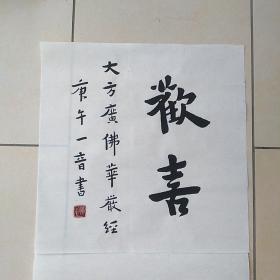 歡喜
大方廣佛華嚴經
庚午一音書